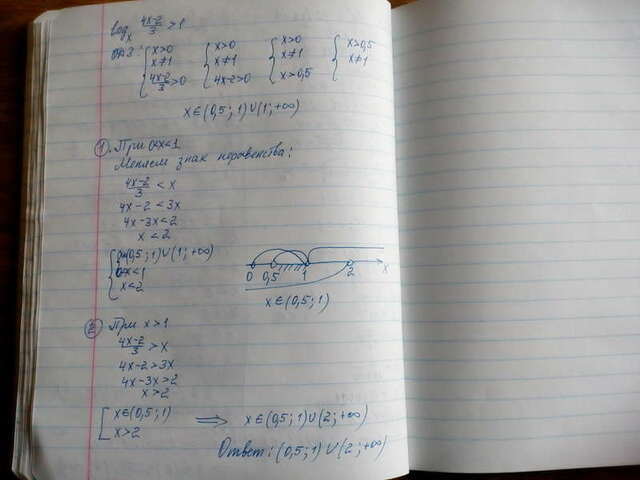 log_x (4x-2)/3 > 1
ОДЗ: { x>0 { x>0 { x>0 { x>0,5
x≠1 x≠1 x≠1 x≠1
(4x-2)/3>0 4x-2>0 x>0,5
x∈(0,5;1)∪(1;+∞)
1. При 0<x<1
Меняем знак неравенства:
(4x-2)/3 < x
4x-2<3x
4x-3x<2
x<2
{ x∈(0,5;1)∪(1;+∞)
0<x<1
x<2
0 0,5 1 2 x
x∈(0,5;1)
2 При x>1
(4x-2)/3 > x
4x-2>3x
4x-3x>2
x>2
[ x∈(0,5;1) ⟹ x∈(0,5;1)∪(2;+∞)
x>2
Ответ: (0,5;1)∪(2;+∞)